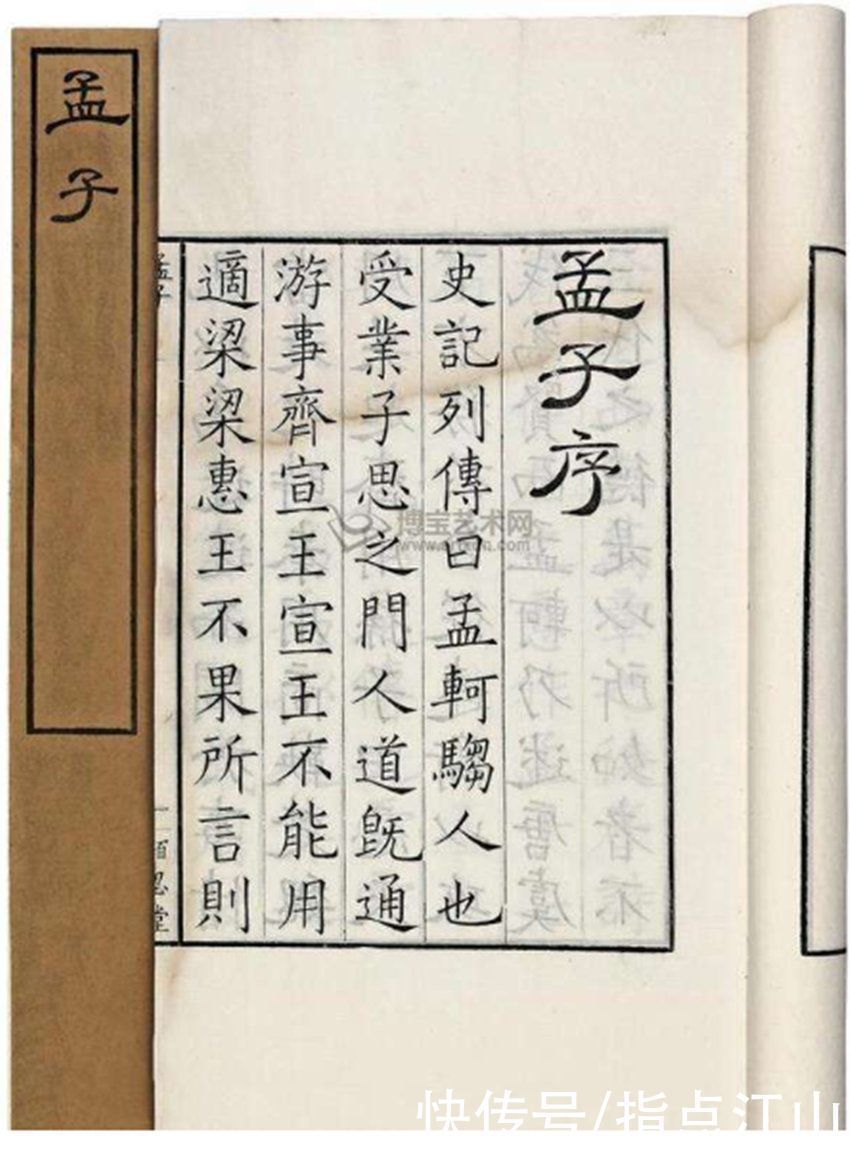 孟子
孟子序
史記列傳曰孟軻騶人也
受業子思之門人道旣通
游事齊宣王宣王不能用
適梁梁惠王不果所言則
孟子
一
博宝艺术网
快传号/指点江山